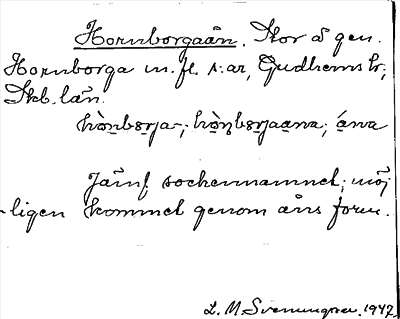 Hornborgaån. Stor å gen.
Hornborga m. fl. s:ar, Gudhems hd;
Skb. län.
Jämf. sockennamnet; möj
-ligen kommet genom åns form.
L. M. Svenungsson. 1947.